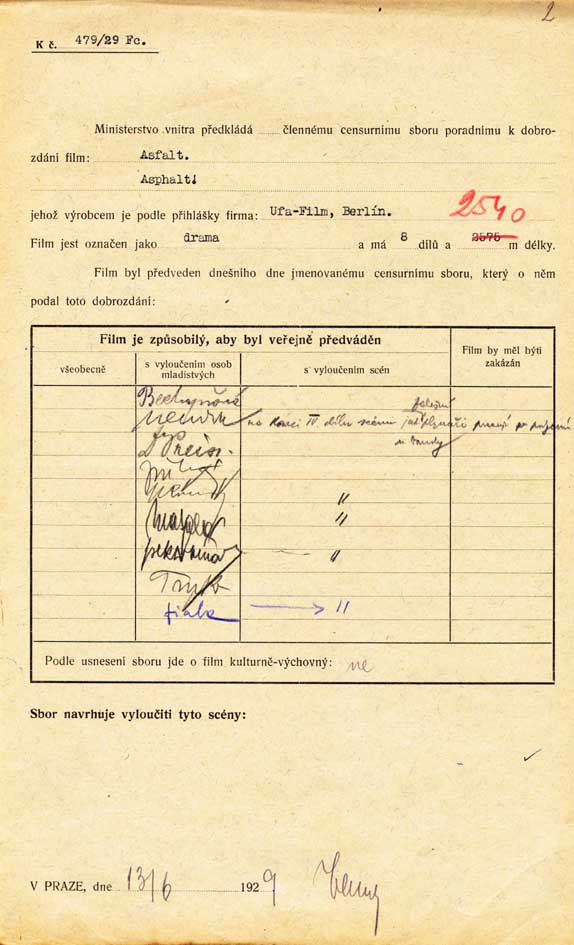 2
K č. 479/29 Fc.
Ministerstvo vnitra předkládá člennému censurnímu sboru poradnímu k dobro-
zdání film: Asfalt.
Asphalt!
jehož výrobcem je podle přihlášky firma: Ufa-Film, Berlín. 2540
Film jest označen jako drama a má 8 dílů a 2575 m délky.
Film byl předveden dnešního dne jmenovanému censurnímu sboru, který o něm
podal toto dobrozdání:
Film je způsobilý, aby byl veřejně předváděn
Film by měl býti
zakázán
všeobecně
s vyloučením osob
mladistvých
s vyloučením scén
Bechyňová
na konci IV. dílu scénu
Preis.
"
"
"
fiala → "
Podle usnesení sboru jde o film kulturně-výchovný: ne
Sbor navrhuje vyloučiti tyto scény:
V PRAZE, dne 13/6 1929